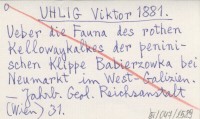 UHLIG Viktor 1881.
Ueber die Fauna des rothen
Kellowaykalkes der penini-
schen Klippe Babierzowka bei
Neumarkt im West-Galizien.
– Jahrb. Geol. Reichsanstalt
(Wien) 31.